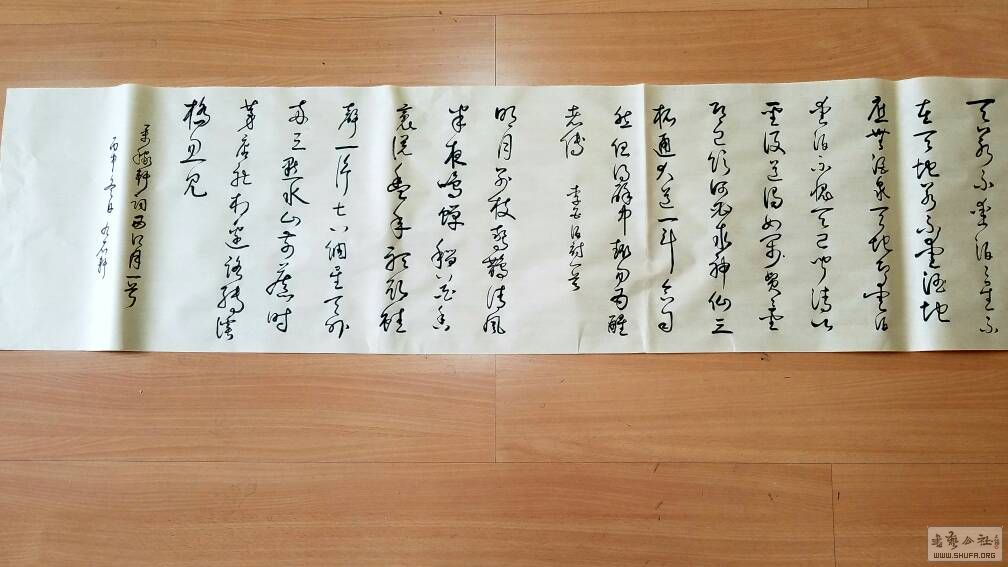 天若不爱酒酒星不
在天地若不爱酒地
应无酒泉天地既爱酒
爱酒不愧天已闻清比
圣复道浊如贤贤圣
既已饮何必求神仙三
杯通大道一斗合自
然但得醉中趣勿为醒
者传 李白酒诗一首
明月别枝惊鹊清风
半夜鸣蝉稻花香
里说丰年听取蛙
声一片七八个星天外
两三点雨山前旧时
茅店社林边路转溪
桥忽见
辛稼轩词西江月一首
丙申
书艺公社
WWW.SHUFA.ORG